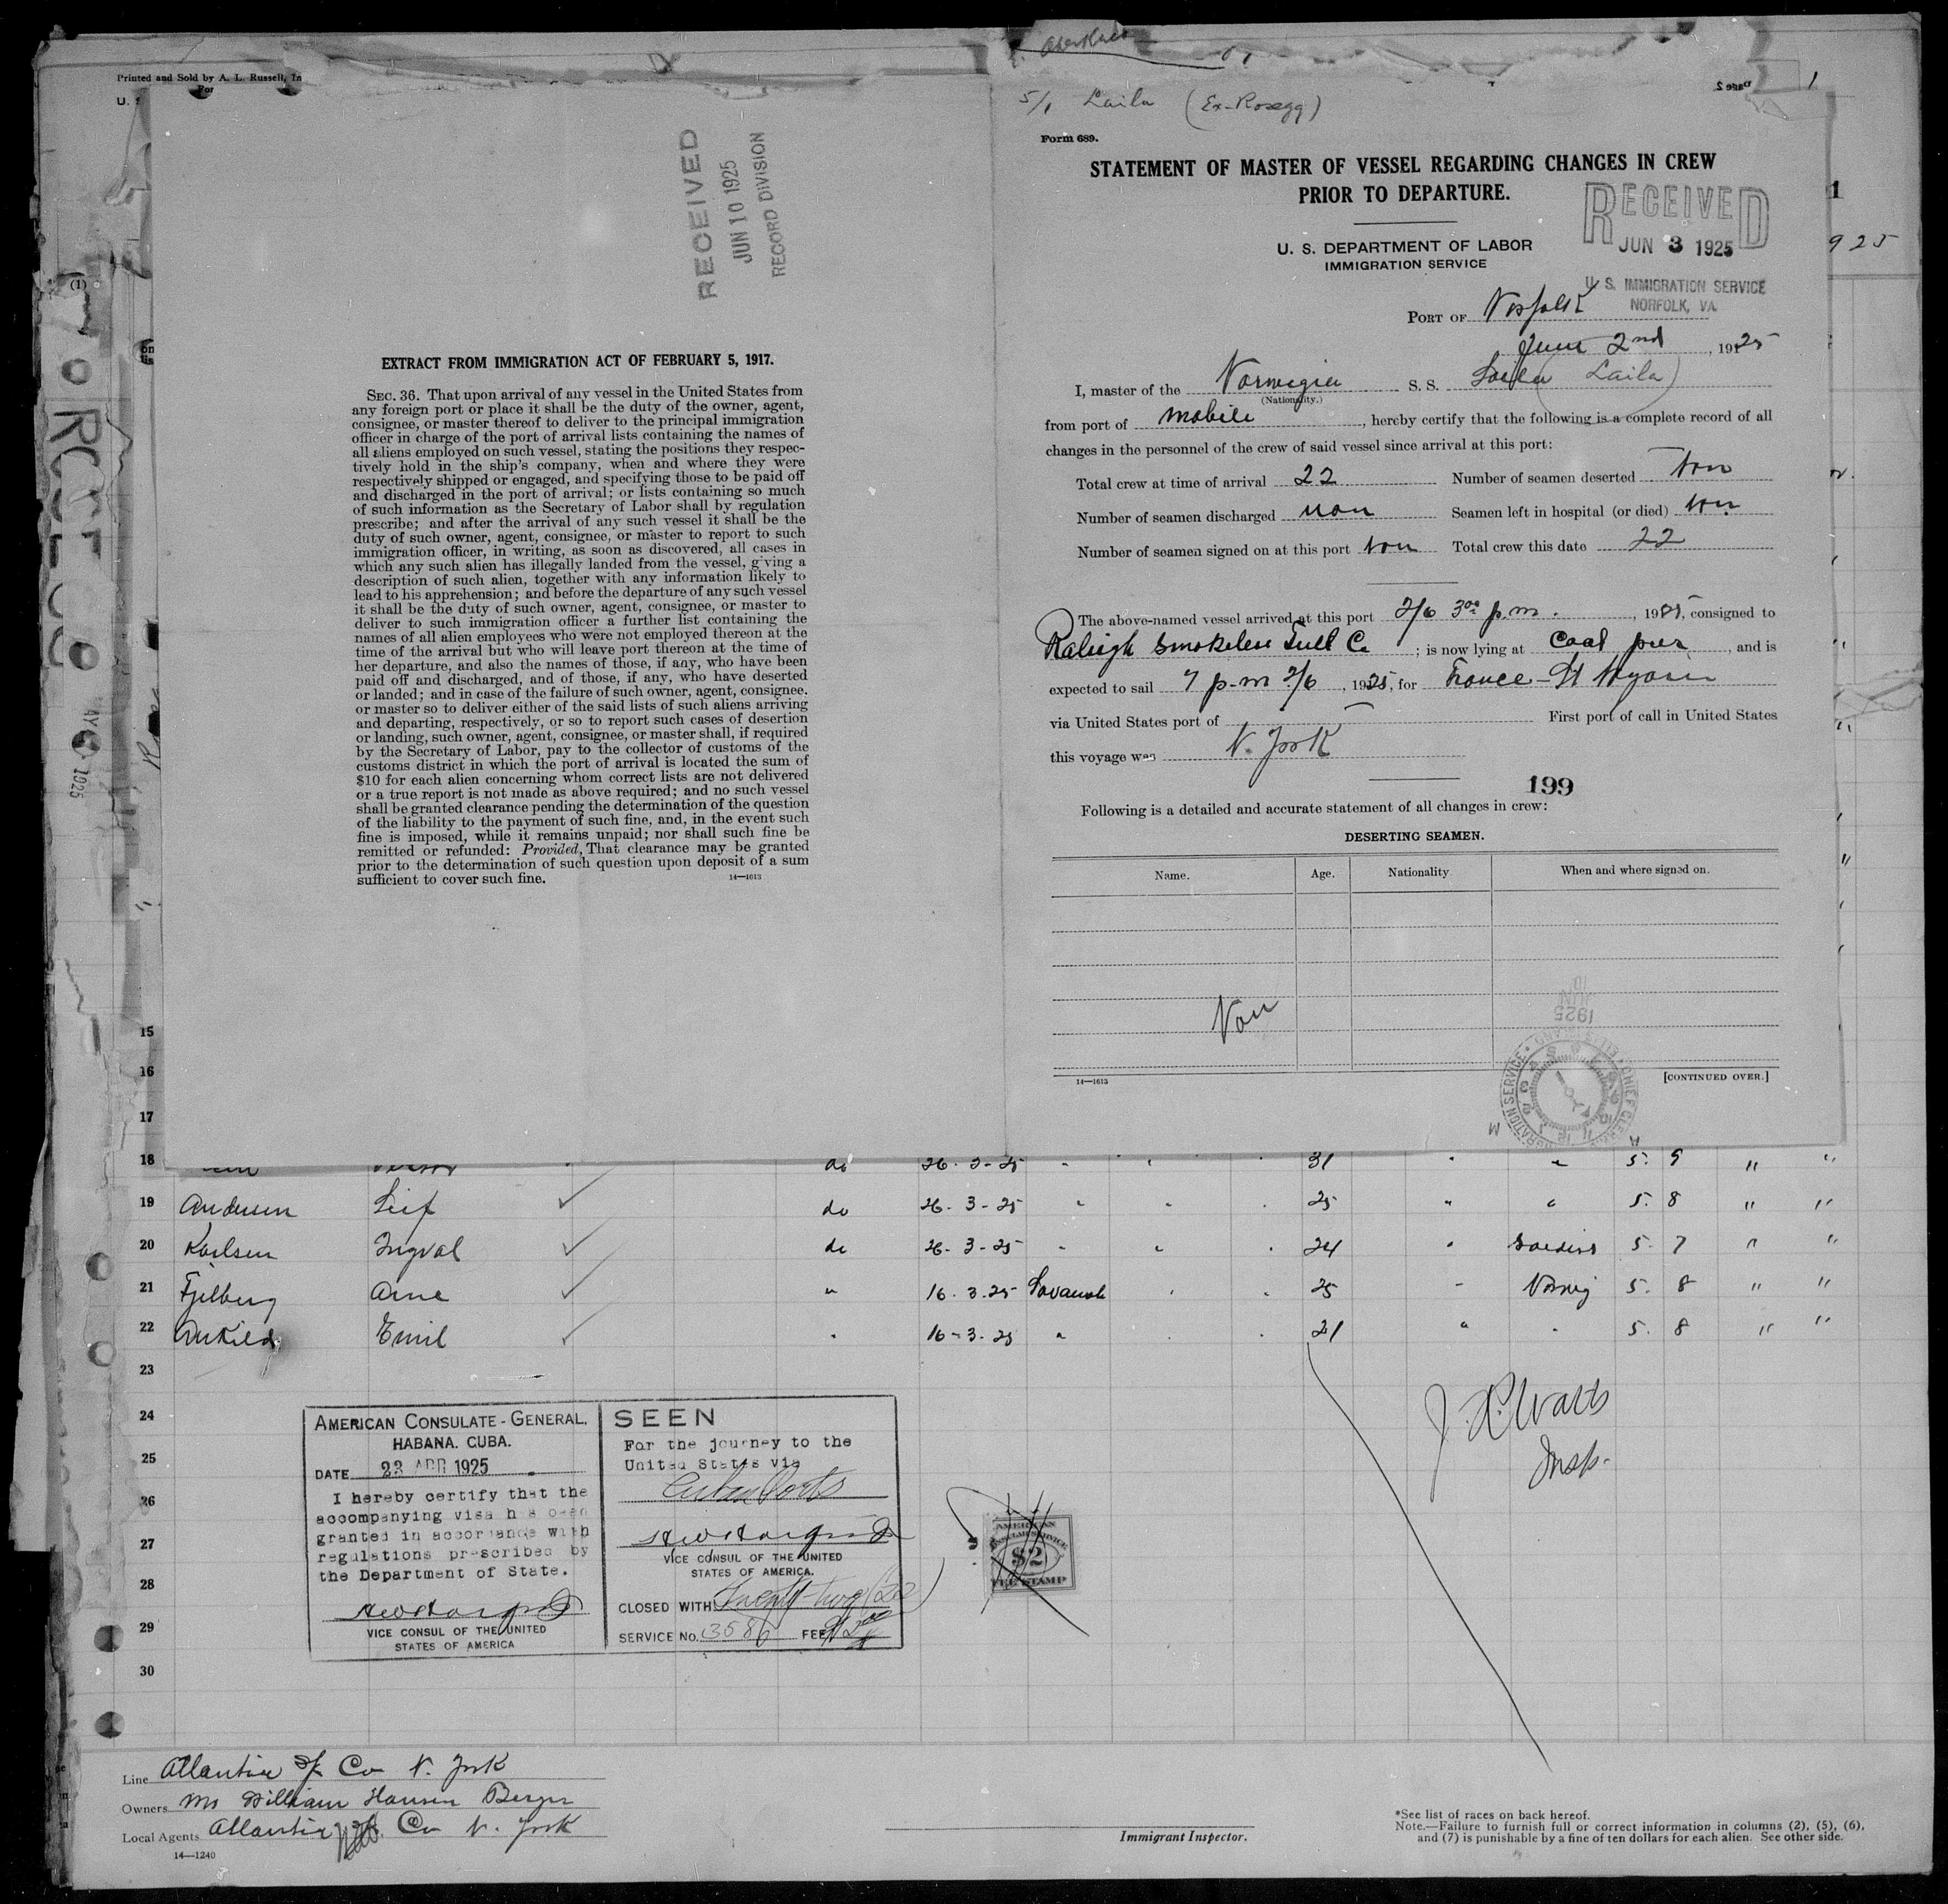 Printed and Sold by A. L. Russell, In
For
U. S
(1)
RECEIVED
JUN 10 1925
RECORD DIVISION
EXTRACT FROM IMMIGRATION ACT OF FEBRUARY 5, 1917.
SEC. 36. That upon arrival of any vessel in the United States from
any foreign port or place it shall be the duty of the owner, agent,
consignee, or master thereof to deliver to the principal immigration
officer in charge of the port of arrival lists containing the names of
all aliens employed on such vessel, stating the positions they respec-
tively hold in the ship's company, when and where they were
respectively shipped or engaged, and specifying those to be paid off
and discharged in the port of arrival; or lists containing so much
of such information as the Secretary of Labor shall by regulation
prescribe; and after the arrival of any such vessel it shall be the
duty of such owner, agent, consignee, or master to report to such
immigration officer, in writing, as soon as discovered, all cases in
which any such alien has illegally landed from the vessel, giving a
description of such alien, together with any information likely to
lead to his apprehension; and before the departure of any such vessel
it shall be the duty of such owner, agent, consignee, or master to
deliver to such immigration officer a further list containing the
names of all alien employees who were not employed thereon at the
time of the arrival but who will leave port thereon at the time of
her departure, and also the names of those, if any, who have been
paid off and discharged, and of those, if any, who have deserted
or landed; and in case of the failure of such owner, agent, consignee.
or master so to deliver either of the said lists of such aliens arriving
and departing, respectively, or so to report such cases of desertion
or landing, such owner, agent, consignee, or master shall, if required
by the Secretary of Labor, pay to the collector of customs of the
customs district in which the port of arrival is located the sum of
$10 for each alien concerning whom correct lists are not delivered
or a true report is not made as above required; and no such vessel
shall be granted clearance pending the determination of the question
of the liability to the payment of such fine, and, in the event such
fine is imposed, while it remains unpaid; nor shall such fine be
remitted or refunded: Provided, That clearance may be granted
prior to the determination of such question upon deposit of a sum
sufficient to cover such fine.
14—1613
Page 2
1
5/1 Laila (Ex-Rosegg)
Form 689.
STATEMENT OF MASTER OF VESSEL REGARDING CHANGES IN CREW
PRIOR TO DEPARTURE.
RECEIVED
JUN 3 1925
U. S. IMMIGRATION SERVICE
NORFOLK, VA.
U. S. DEPARTMENT OF LABOR
IMMIGRATION SERVICE
PORT OF Norfolk
June 2nd, 1925
I, master of the Norwegia S. S. Laila (Laila)
(Nationality.)
from port of Mobile, hereby certify that the following is a complete record of all
changes in the personnel of the crew of said vessel since arrival at this port:
Total crew at time of arrival 22 Number of seamen deserted Non
Number of seamen discharged non Seamen left in hospital (or died) Non
Number of seamen signed on at this port Non Total crew this date 22
The above-named vessel arrived at this port 2/6 3oo p.m., 1925, consigned to
Raleigh Smokeless Fuell Co; is now lying at Coal pier, and is
expected to sail 7 p-m 2/6, 1925, for France - St
via United States port of — First port of call in United States
this voyage was N. York
199
Following is a detailed and accurate statement of all changes in crew:
DESERTING SEAMEN.
Name. Age. Nationality When and where signed on.
Non
JUN
1925
14—1613
[CONTINUED OVER.]
925
15
16
17
18 do 26-3-25 31 5. 9 " "
19 Andersen Leif do 26-3-25 25 5. 8 " "
20 Karlsen Ingval do 26-3-25 24 5. 7 " "
21 Fjelberg Arne " 16.3.25 Savanah 25 Norwig 5. 8 " "
22 Emil 16-3-25 " 21 " 5. 8 " "
23
24
25
26
27
28
29
30
AMERICAN CONSULATE-GENERAL.
HABANA. CUBA.
DATE 23 APR 1925
I hereby certify that the
accompanying visa has been
granted in accordance with
regulations prescribed by
the Department of State.
VICE CONSUL OF THE UNITED
STATES OF AMERICA
SEEN
For the journey to the
United States via
Cuban Ports
VICE CONSUL OF THE UNITED
STATES OF AMERICA.
CLOSED WITH Twenty-two (22)
SERVICE No. 3586 FEE $2 00
AMERICAN
CONSULAR SERVICE
$2
FEE STAMP
J. Watts
Insp.
Line Atlantic Co N. York
Owners Mr William Hansen Bergen
Local Agents Atlantic Co N. York
14—1240
Immigrant Inspector.
*See list of races on back hereof.
Note.—Failure to furnish full or correct information in columns (2), (5), (6),
and (7) is punishable by a fine of ten dollars for each alien. See other side.